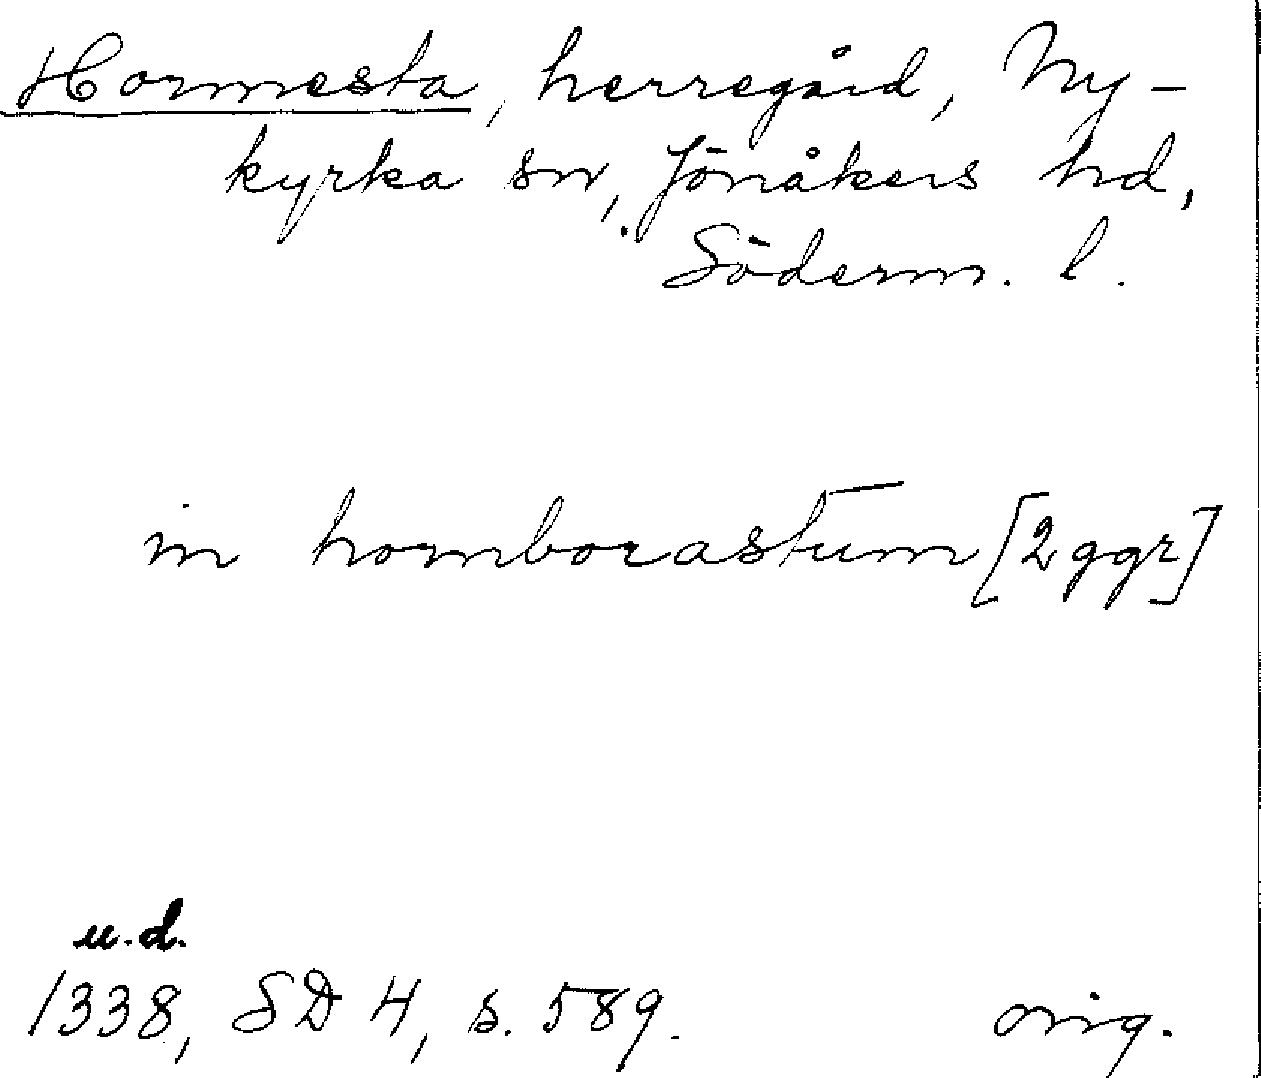 Hormesta, herregård, Ny-
kyrka sn, Jönåkers hd,
Söderm. l.
in hornborastum [2ggr]
u.d.
1338, SD 4, s. 589.
orig.